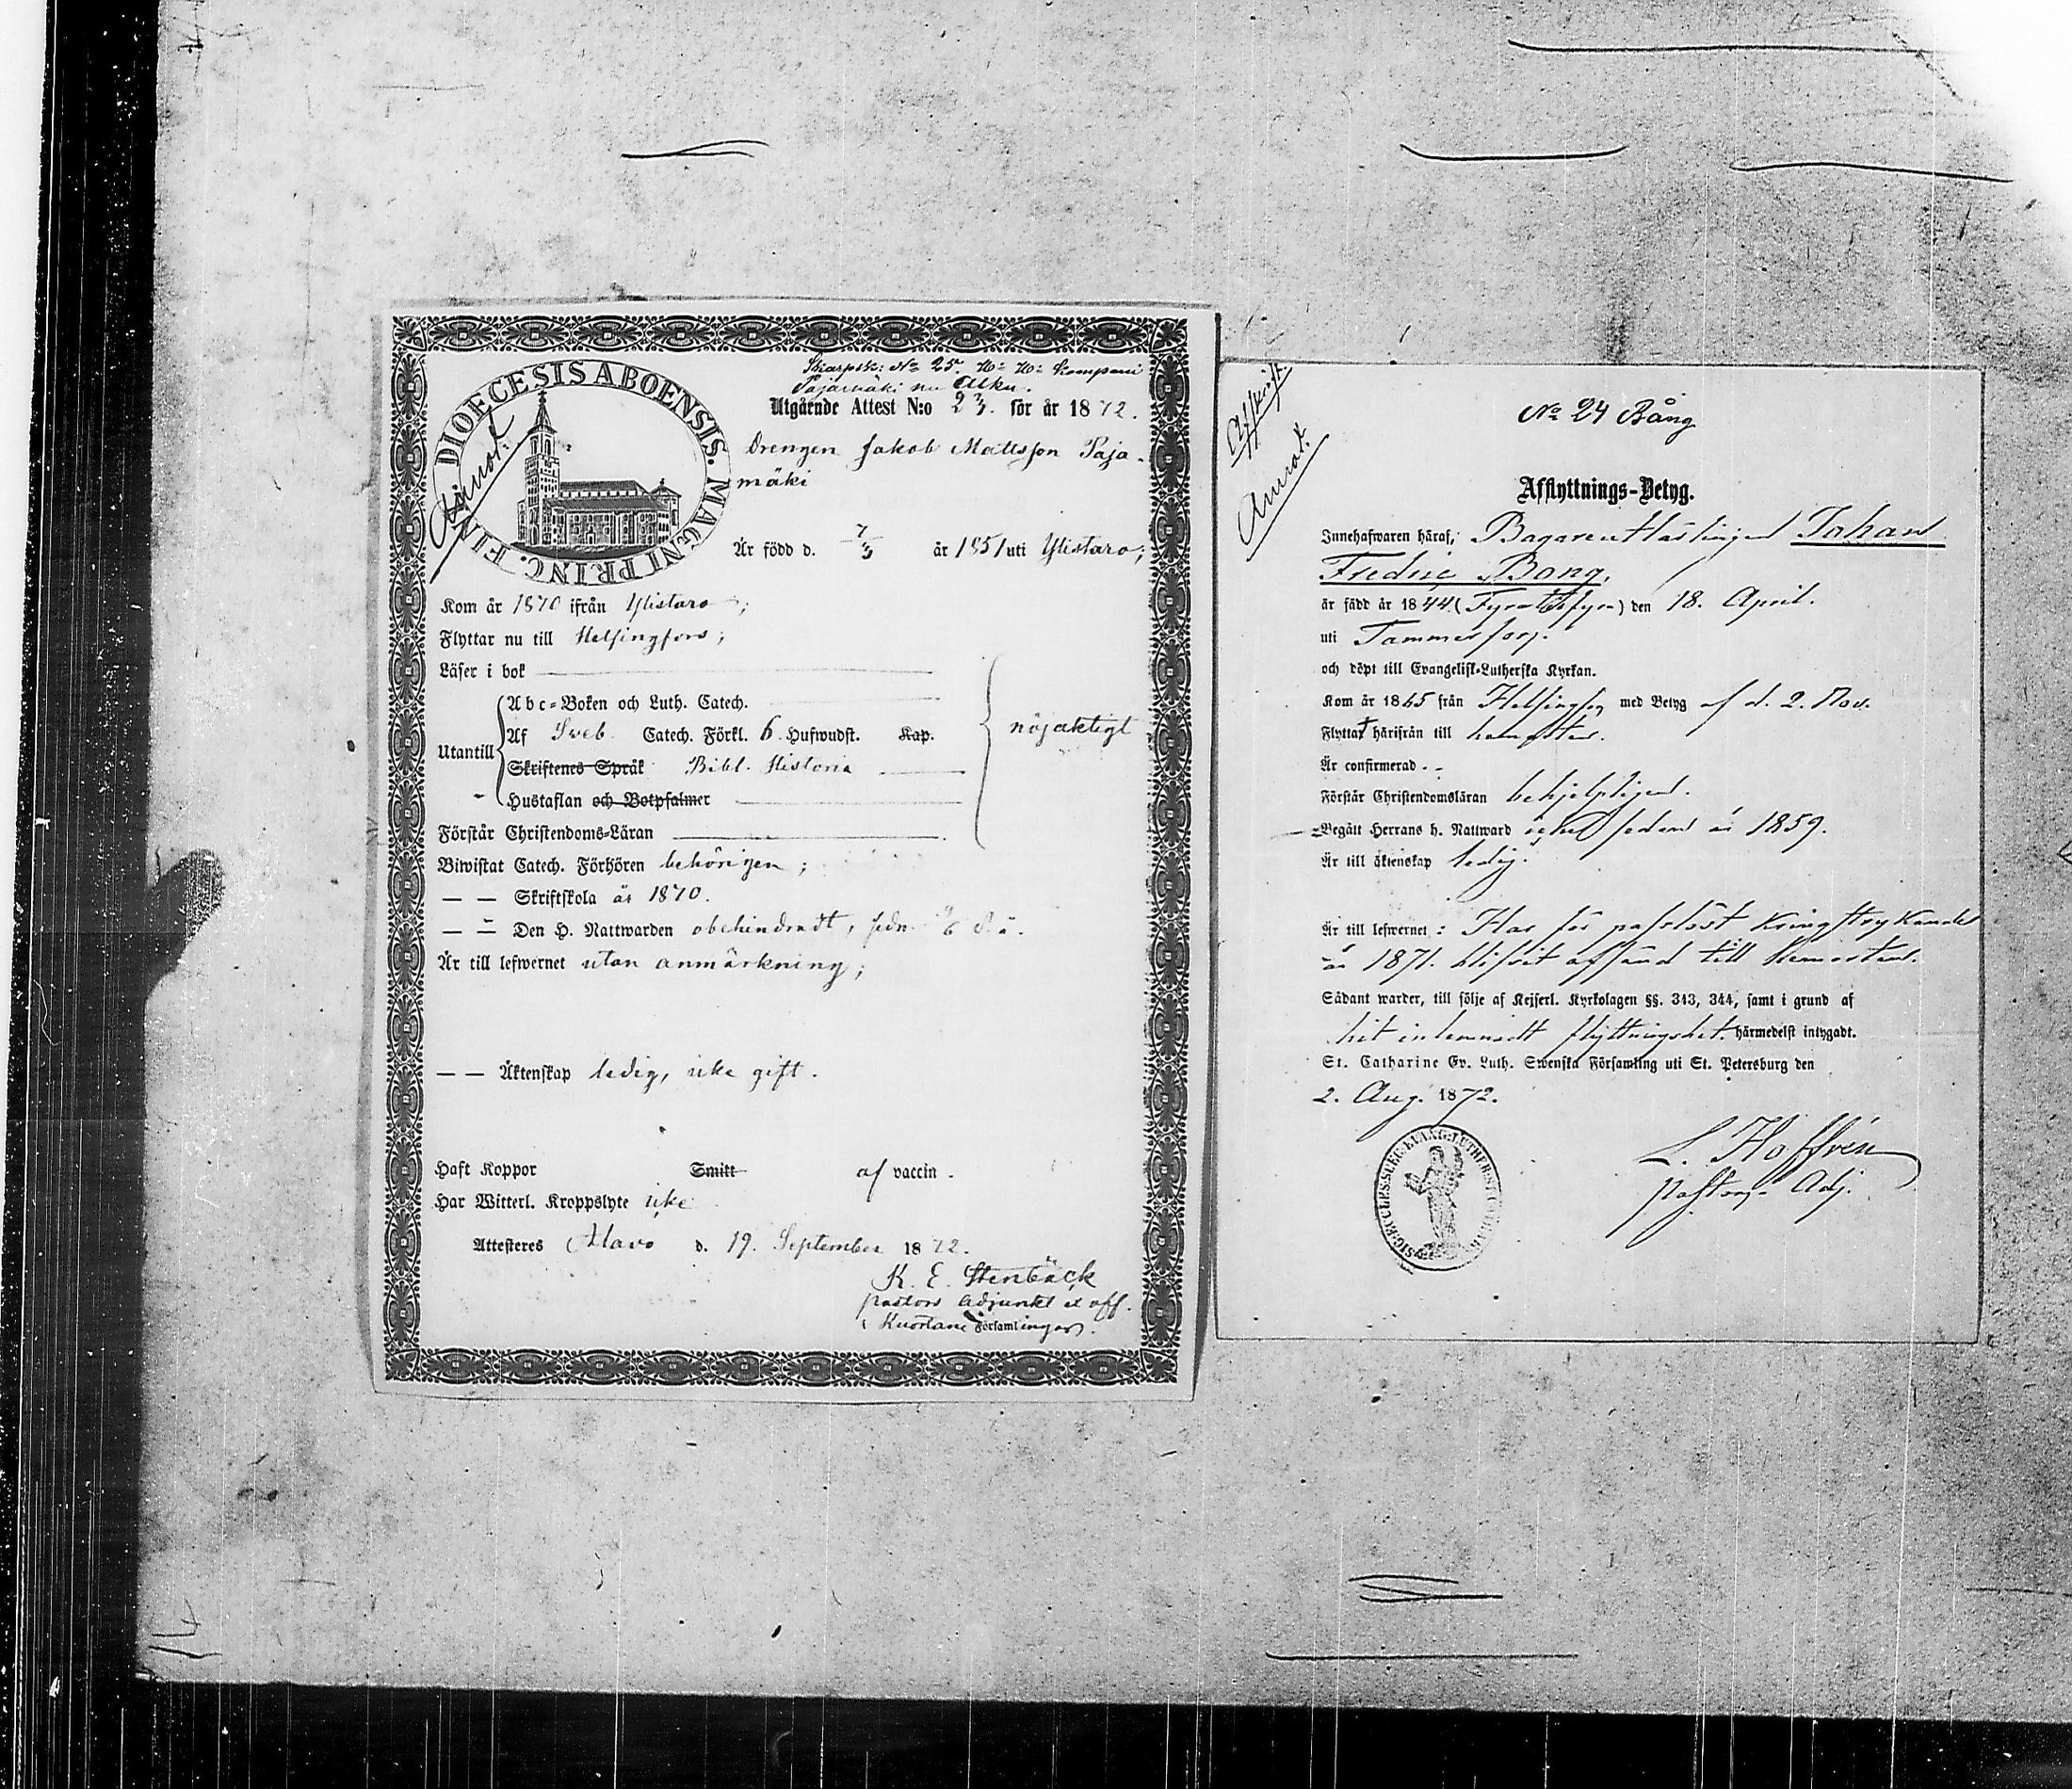 Skarpsk: No 25. Kompani
Pajamäki nu Alku.
DIOECESIS ABOENSIS. MAGNI PRINC. FIN
Annot.
Utgårnde Attest N:o 23. för år 1872.
Drengen Jakob Mattsson Paja-
mäki
Är född d. 7/3 år 1851 uti Ylistaro;
Kom år 1870 ifrån Ylistaro;
Flyttar nu till Helsingfors;
Läser i bok
Abc-Boken och Luth. Catech.
Utantill Af Sveb. Catech. Förkl. 6 Hufwudst. Kap. nöjaktigt
Skriftenes Språk Bibl. Historia
Hustaflan och Botpsalmer
Förstår Christendoms-Läran
Biwistat Catech. Förhören behörigen;
— — Skriftskola år 1870.
— — Den H. Nattwarden obehindradt, sedn.
Är till lefwernet utan anmärkning;
— — Äktenskap ledig, icke gift.
Haft Koppor Smitt af vaccin.
Har Witterl. Kroppslyte icke
Attesteres Alavo d. 19. September 1872.
K. E. Stenbäck
pastors adjunkt et off.
i Kuortane Församlingar.
Afskrift
Annot.
No 24 Bång
Afflyttnings-Betyg.
Innehafwaren häraf, Bagare Johan
Fredric Bong,
är född år 1844 (Fyratifyra) den 18. April.
uti Tammerfors.
och döpt till Evangelisk-Lutherska Kyrkan.
Kom år 1865 från Helsingfors med Betyg af d. 2. Nov.
Flyttat härifrån till hemorten.
Är confirmerad.
Förstår Christendomsläran behjelpligen.
Begått Herrans h. Nattward icke sedan år 1859.
Är till äktenskap ledig.
Är till lefwernet: Har för passlöst kringstrykande
år 1871. blifvit afsänd till hemorten.
Sådant warder, till följe af Kejserl. Kyrkolagen §§. 343, 344, samt i grund af
hit inlemnadt flyttningsbet. härmedelst intygadt.
St. Catharine Ev. Luth. Swenska Församling uti St. Petersburg den
2. Aug. 1872.
L. Hoffrén
Pastors Adj.